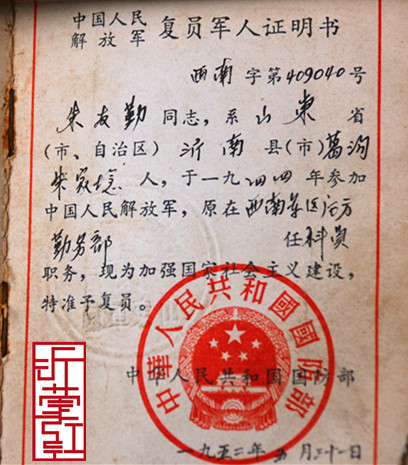 中国人民
解放军 复员军人证明书
西南字第409040号
朱友勤同志，系山东省
(市、自治区)沂南县(市)葛沟
朱家人，于一九四四年参加
中国人民解放军，原在西南军区后方
勤务部 任科员
职务，现为加强国家社会主义建设，
特准予复员。
中華人民共和國國防部
中华人民共和国国防部
一九五二年五月三十一日
沂蒙红